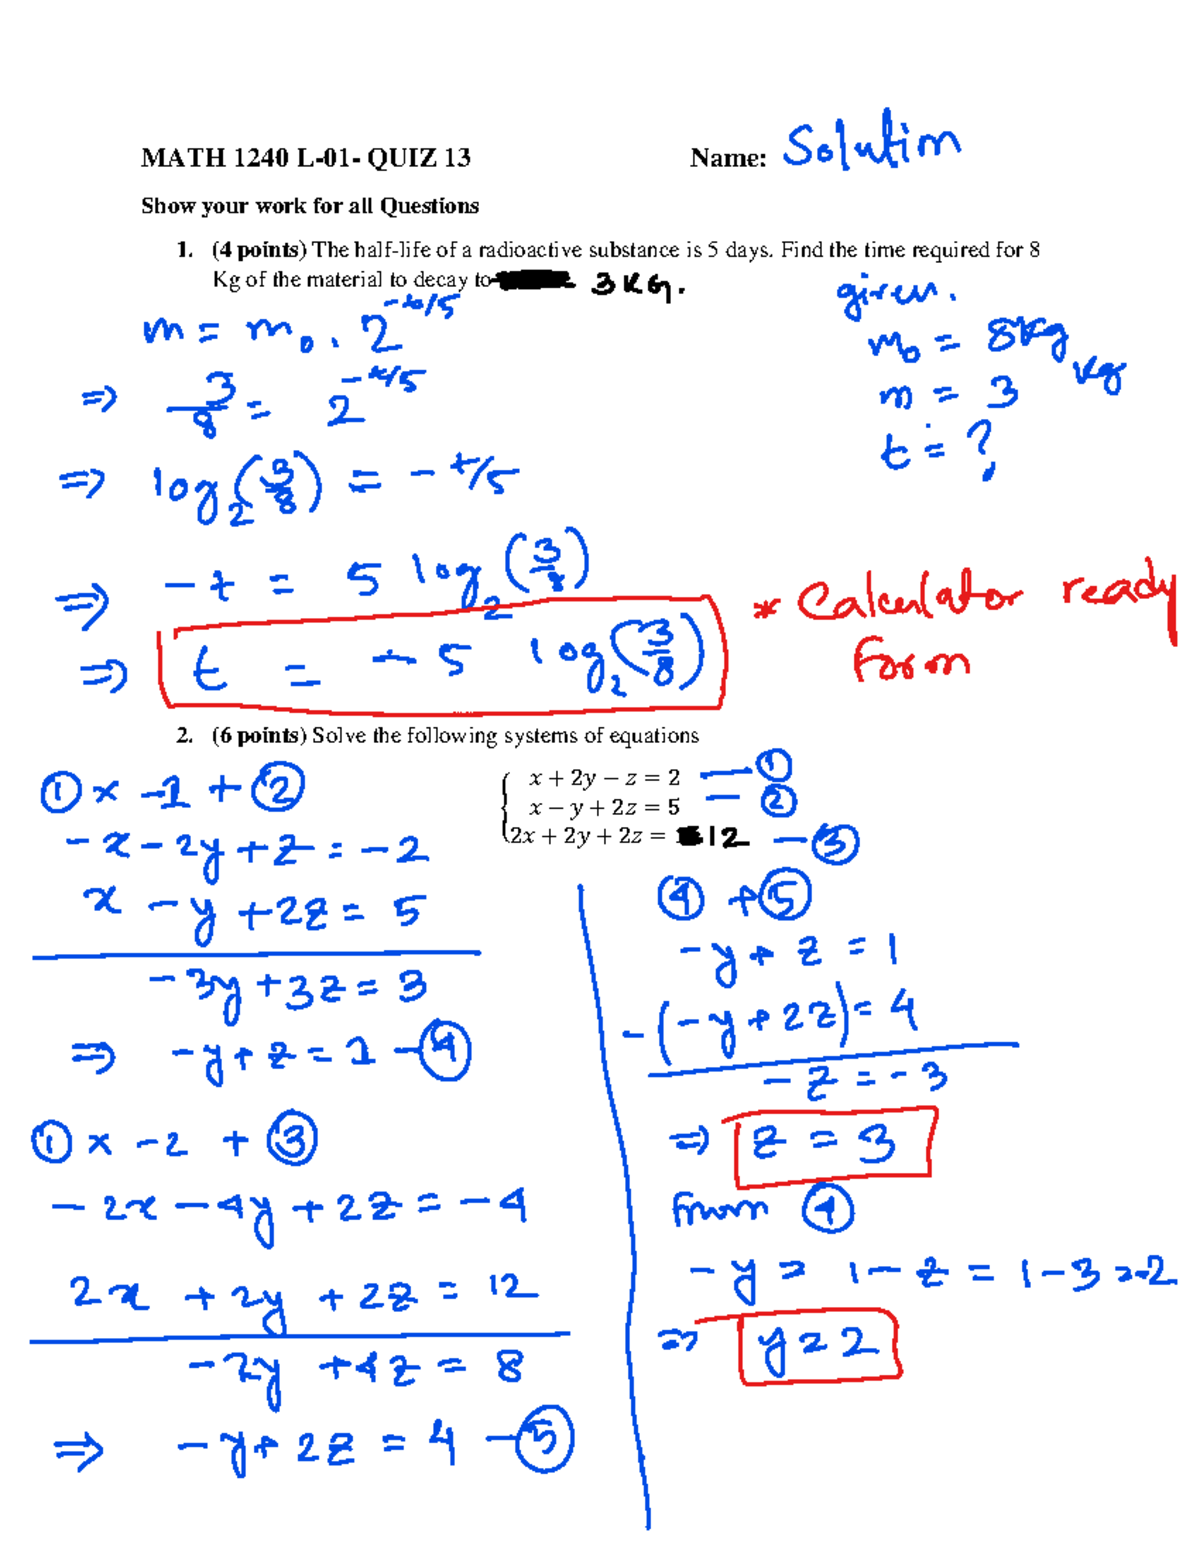 MATH 1240 L-01- QUIZ 13 Name: Solution
Show your work for all Questions
1. (4 points) The half-life of a radioactive substance is 5 days. Find the time required for 8
Kg of the material to decay to 3KG.
given.
m = m₀ . 2^(-t/5)
m₀ = 8kg
⇒ 3/8 = 2^(-t/5)
m = 3 kg
t = ?
⇒ log₂(3/8) = -t/5
⇒ -t = 5 log₂(3/8)
* Calculator ready
Form
⇒ t = -5 log₂(3/8)
2. (6 points) Solve the following systems of equations
x + 2y − z = 2 — ①
x − y + 2z = 5 — ②
2x + 2y + 2z = 12 — ③
① x -1 + ②
-x - 2y + z = -2
x - y + 2z = 5
-3y + 3z = 3
⇒ -y + z = 1 — ④
① x -2 + ③
-2x - 4y + 2z = -4
2x + 2y + 2z = 12
-2y + 4z = 8
⇒ -y + 2z = 4 — ⑤
④ + ⑤
-y + z = 1
-(-y + 2z) = 4
-z = -3
⇒ z = 3
from ④
-y = 1 - z = 1 - 3 = -2
⇒ y = 2